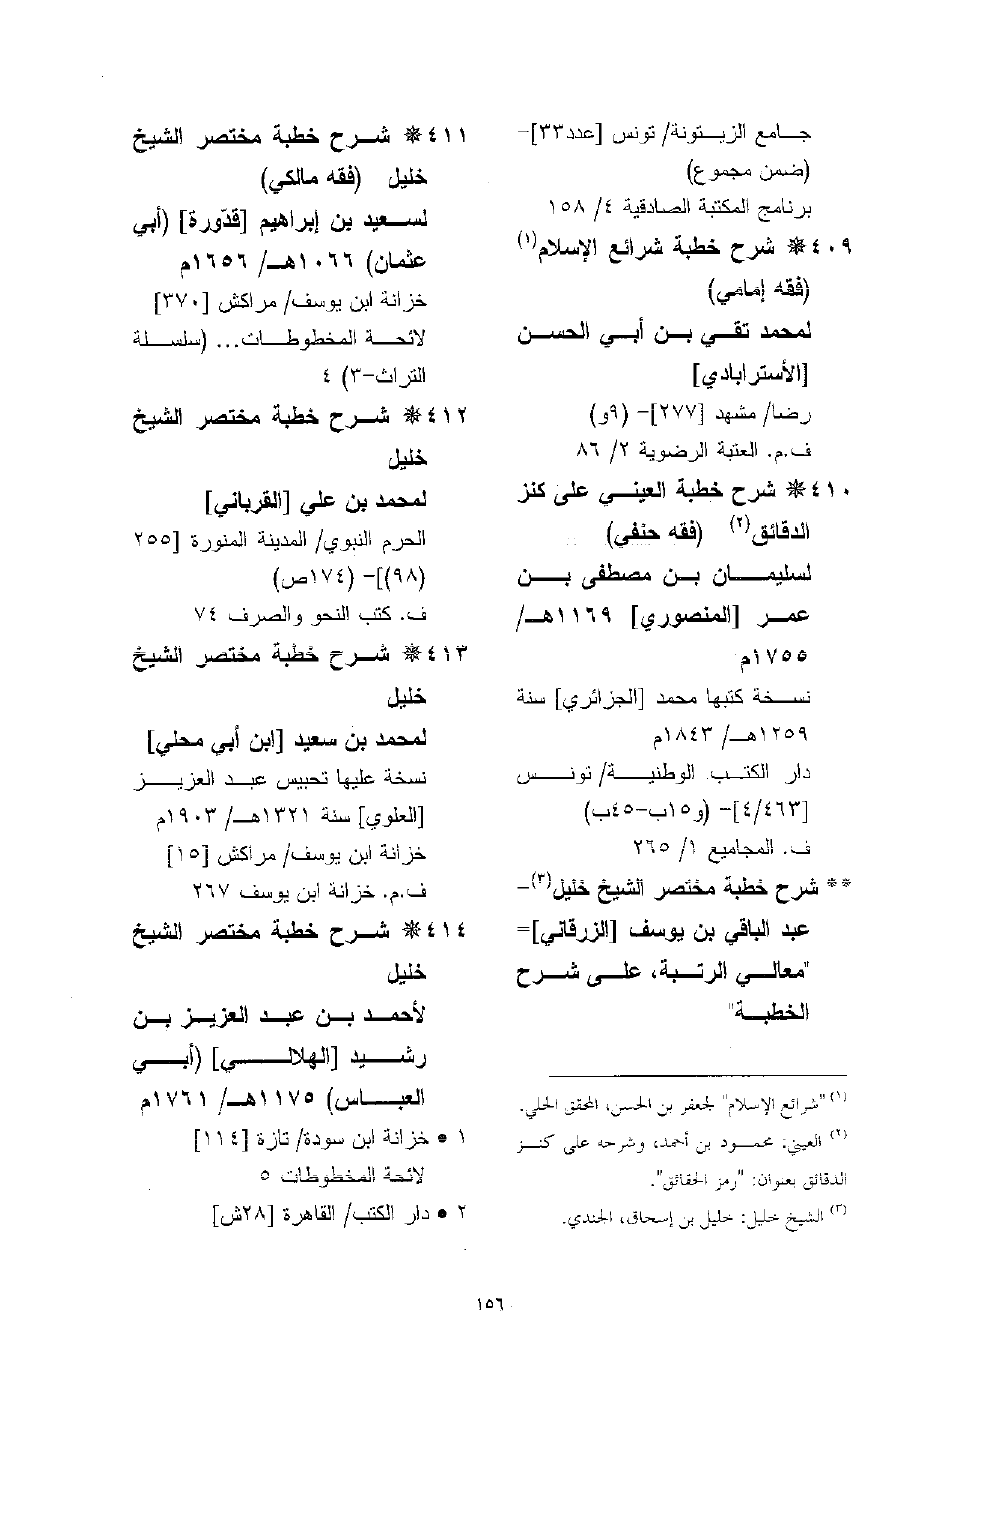 جامع الزيتونة/ تونس [عدد٣٣]-
(ضمن مجموع)
برنامج المكتبة الصادقية ٤/ ١٥٨
٤٠٩* شرح خطبة شرائع الإسلام(١)
(فقه إمامي)
لمحمد تقي بن أبي الحسن
[الأسترابادي]
رضا/ مشهد [٢٧٧]- (٩و)
ف.م. العتبة الرضوية ٢/ ٨٦
٤١٠* شرح خطبة العيني على كنز
الدقائق(٢) (فقه حنفي)
لسليمان بن مصطفى بن
عمر [المنصوري] ١١٦٩هـ/
١٧٥٥م
نسخة كتبها محمد [الجزائري] سنة
١٢٥٩هـ/ ١٨٤٣م
دار الكتب الوطنية/ تونس
[٤/٤٦٣]- (و١٥ب-٤٥ب)
ف. المجاميع ١/ ٢٦٥
** شرح خطبة مختصر الشيخ خليل(٣)-
عبد الباقي بن يوسف [الزرقاني]=
"معالي الرتبة، على شرح
الخطبة"
(١) "شرائع الإسلام" لجعفر بن الحسن، المحقق الحلي.
(٢) العيني: محمود بن أحمد، وشرحه على كنز
الدقائق بعنوان: "رمز الحقائق".
(٣) الشيخ خليل: خليل بن إسحاق، الجندي.
٤١١* شرح خطبة مختصر الشيخ
خليل (فقه مالكي)
لسعيد بن إبراهيم [قدّورة] (أبي
عثمان) ١٠٦٦هـ/ ١٦٥٦م
خزانة ابن يوسف/ مراكش [٣٧٠]
لائحة المخطوطات... (سلسلة
التراث-٣) ٤
٤١٢* شرح خطبة مختصر الشيخ
خليل
لمحمد بن علي [القرباني]
الحرم النبوي/ المدينة المنورة [٢٥٥
(٩٨)]- (١٧٤ص)
ف. كتب النحو والصرف ٧٤
٤١٣* شرح خطبة مختصر الشيخ
خليل
لمحمد بن سعيد [ابن أبي محلي]
نسخة عليها تحبيس عبد العزيز
[العلوي] سنة ١٣٢١هـ/ ١٩٠٣م
خزانة ابن يوسف/ مراكش [١٥]
ف.م. خزانة ابن يوسف ٢٦٧
٤١٤* شرح خطبة مختصر الشيخ
خليل
لأحمد بن عبد العزيز بن
رشيد [الهلالي] (أبي
العباس) ١١٧٥هـ/ ١٧٦١م
١ • خزانة ابن سودة/ تازة [١١٤]
لائحة المخطوطات ٥
٢ • دار الكتب/ القاهرة [٢٨ش]
١٥٦